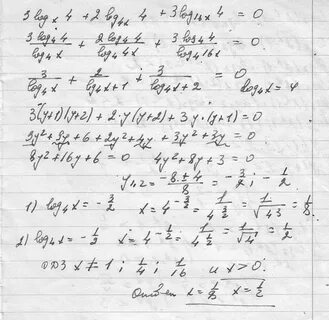 3 log_x 4 + 2 log_{4x} 4 + 3 log_{16x} 4 = 0
3 log_4 4 / log_4 x + 2 log_4 4 / log_4 4x + 3 log_4 4 / log_4 16x = 0
3 / log_4 x + 2 / log_4 x+1 + 3 / log_4 x+2 = 0 log_4 x = y
3(y+1)(y+2) + 2·y(y+2) + 3y·(y+1) = 0
3y² + 9y + 6 + 2y² + 4y + 3y² + 3y = 0
8y² + 16y + 6 = 0 4y² + 8y + 3 = 0
y_{1,2} = (-8 ± 4) / 8 = -3/2 ; -1/2
1) log_4 x = -3/2 x = 4^{-3/2} = 1/4^{3/2} = 1/√4³ = 1/8
2) log_4 x = -1/2 x = 4^{-1/2} = 1/4^{1/2} = 1/√4 = 1/2
ОДЗ x ≠ 1 ; 1/4 ; 1/16 и x > 0.
Ответ x = 1/8 x = 1/2